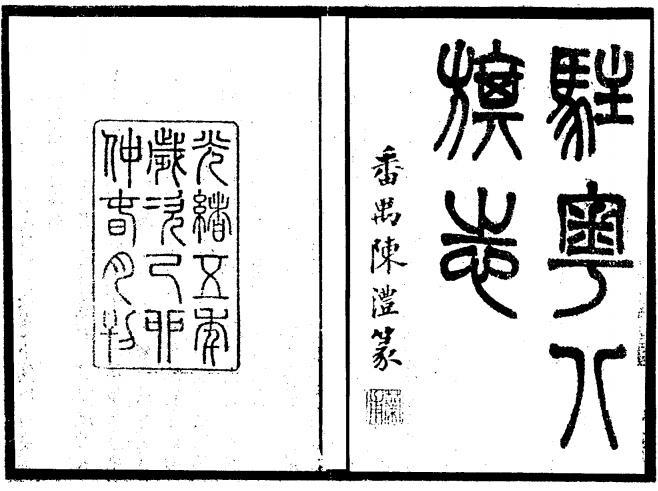 駐粵八
旗志
番禺陳澧篆
光緒五年
歲次己卯
仲春月刊